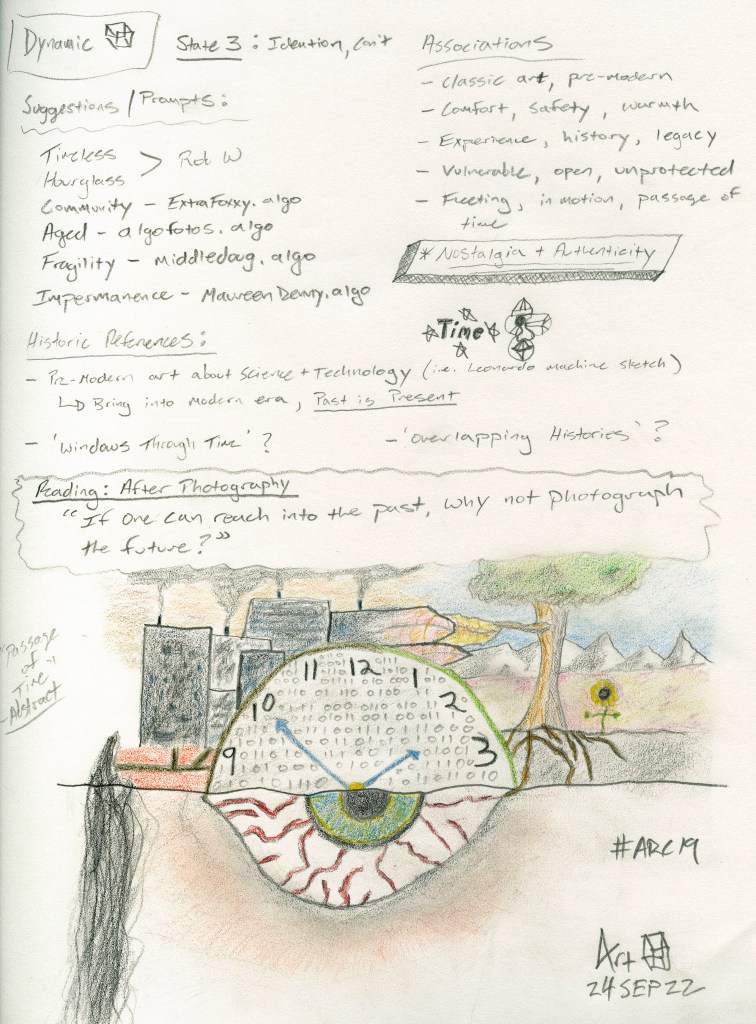 Dynamic
State 3: Ideation, Con't
Suggestions / Prompts:
Timeless
Hourglass
> Rob W
Community - ExtraFoxxy.algo
Aged - algofotos.algo
Fragility - Middledag.algo
Impermanence - MaureenDenny.algo
Associations
- Classic art, pre-modern
- Comfort, safety, warmth
- Experience, history, legacy
- Vulnerable, open, unprotected
- Fleeting, in motion, passage of
time
* Nostalgia + Authenticity
Time
Historic References:
- Pre-Modern art about Science + Technology (i.e. Leonardo machine sketch)
Bring into modern era, Past is Present
- 'Windows Through Time'?
- 'Overlapping Histories'?
Reading: After Photography
"If one can reach into the past, why not photograph
the future?"
"Passage
of
Time"
Abstract
11 12 1
10 2
9 3
#ARC19
Art
24 SEP 22